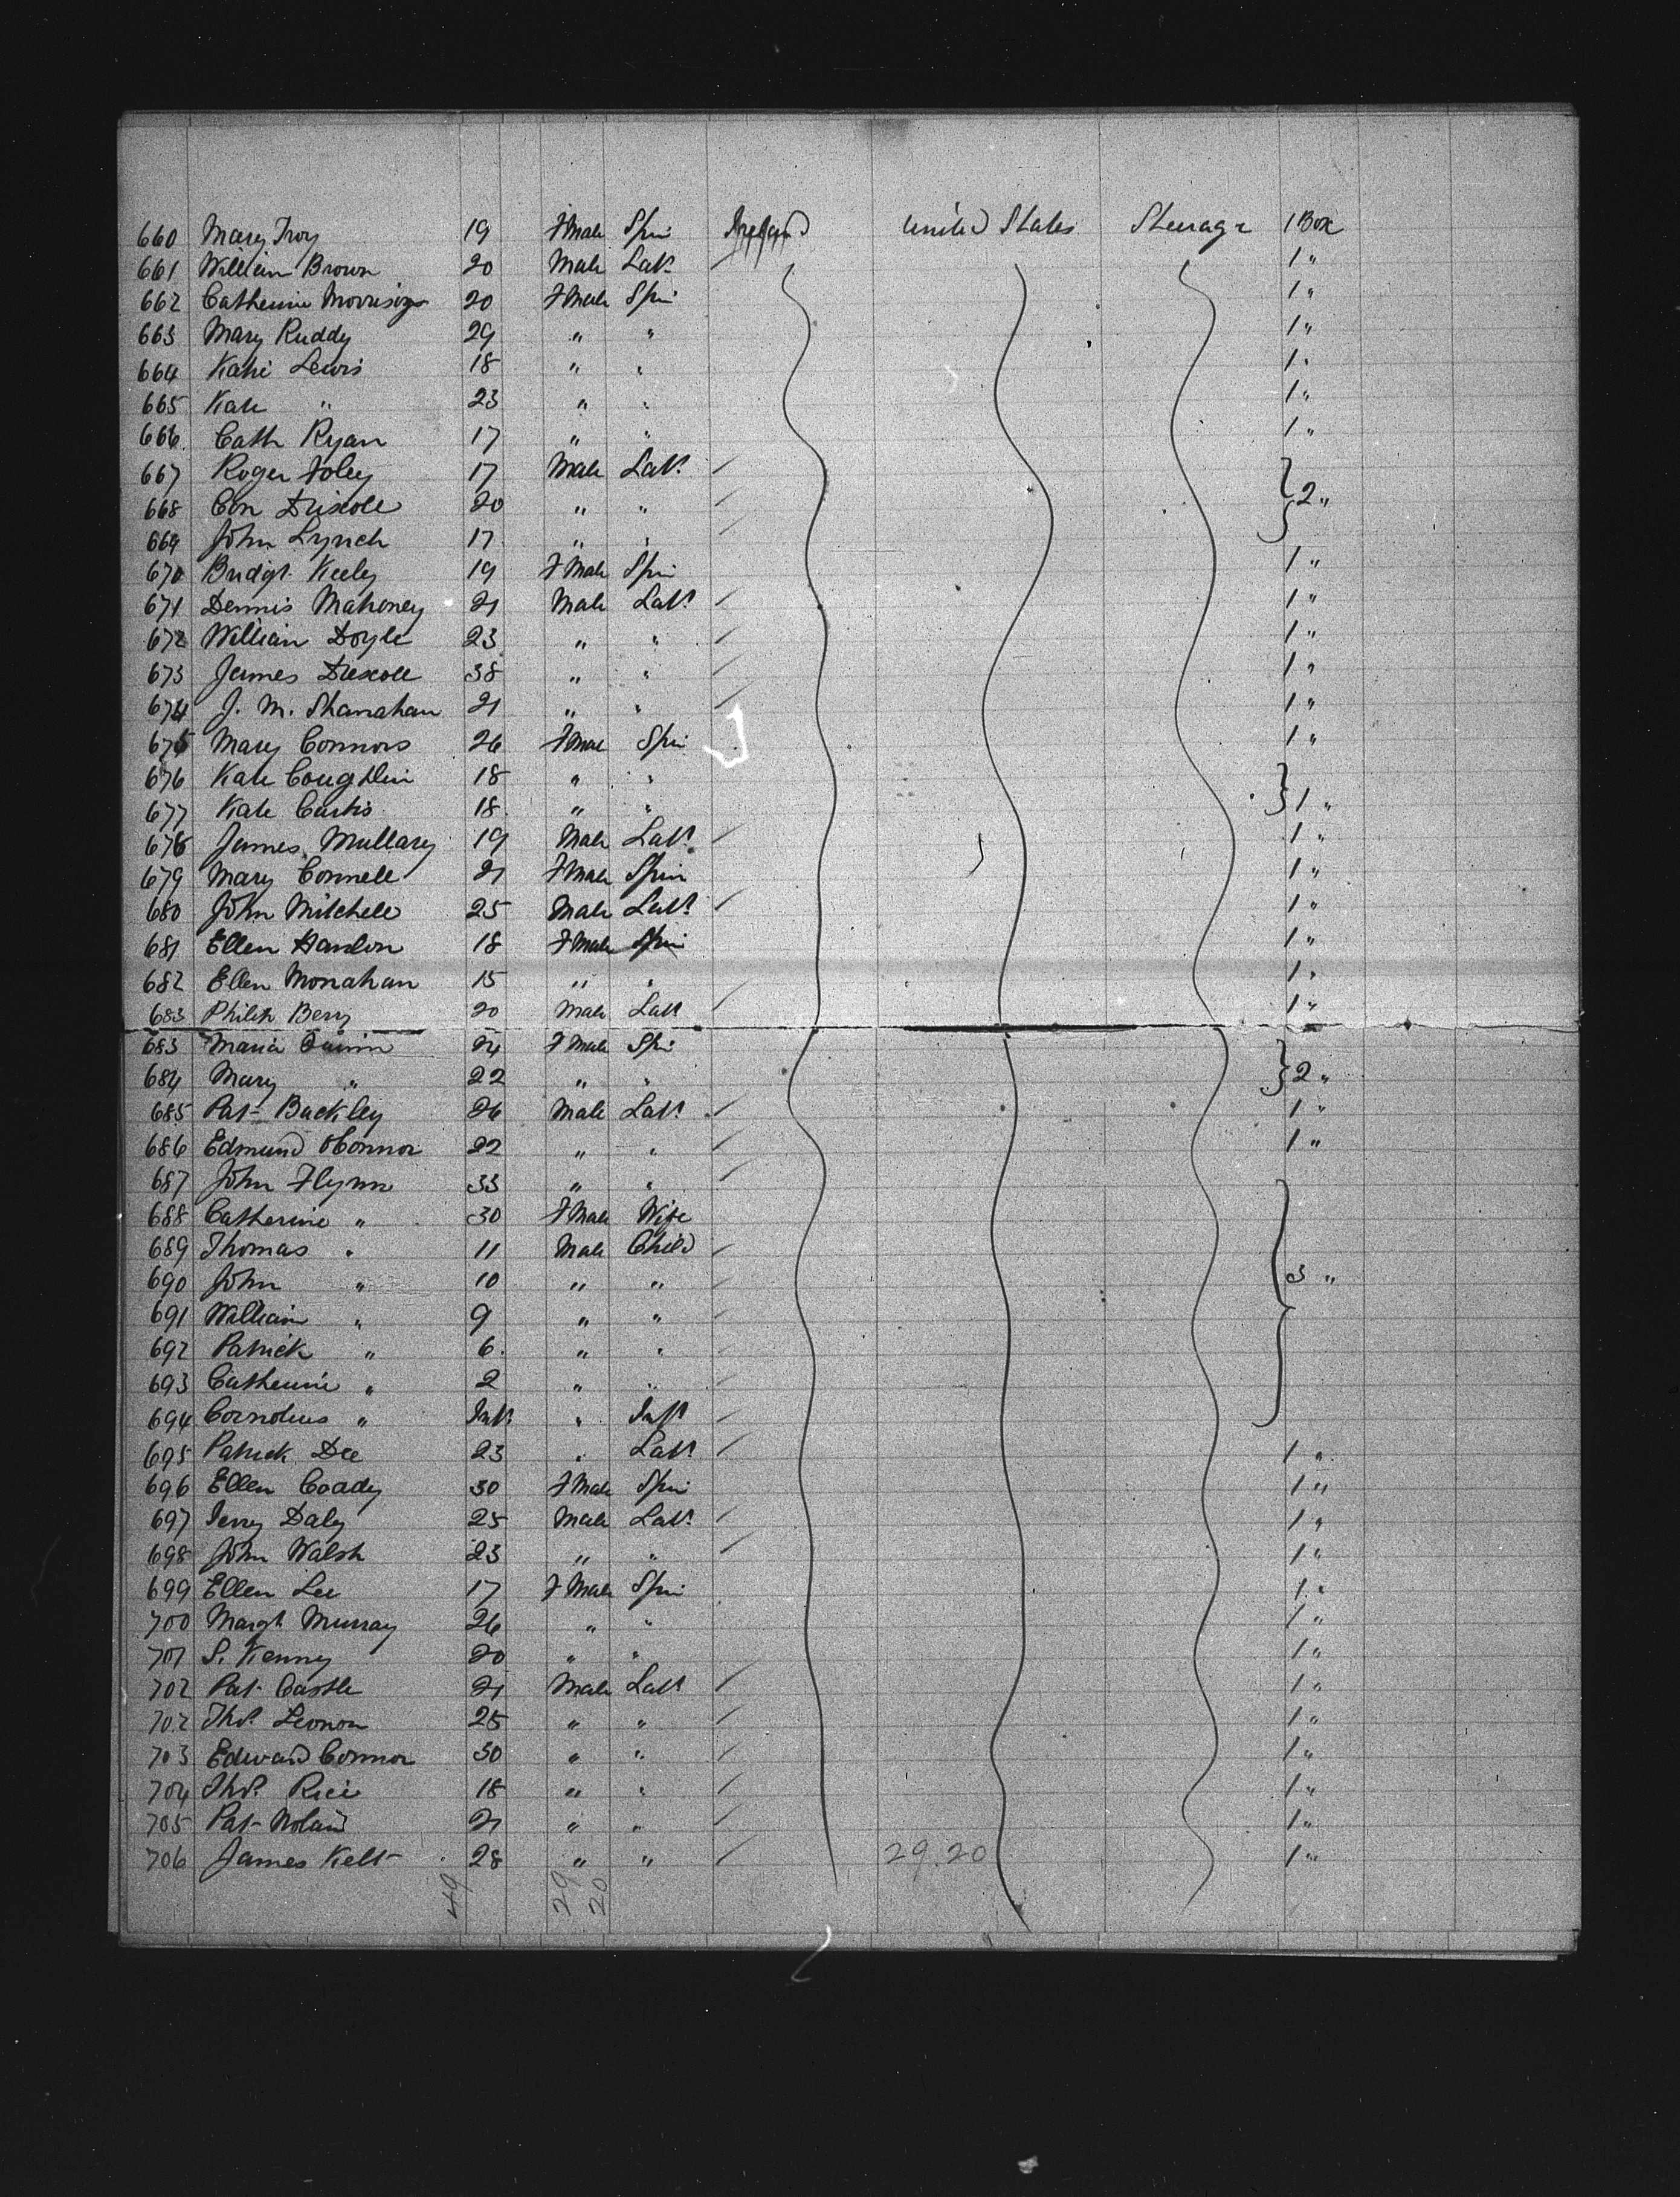 660 Mary Troy 19 Fmale Spin Ireland United States Steerage 1 Box
661 William Brown 20 Male Labr 1 "
662 Catherine Morrisey 20 Fmale Spin 1 "
663 Mary Ruddy 29 " " 1 "
664 Katie Lewis 18 " " 1 "
665 Kate " 23 " " 1 "
666 Cath Ryan 17 " " 1 "
667 Roger Foley 17 Male Labr
668 Con Driscoll 20 " " 2 "
669 John Lynch 17 " "
670 Bridgt Keeley 19 Fmale Spin 1 "
671 Dennis Mahoney 21 Male Labr 1 "
672 William Doyle 23 " " 1 "
673 James Driscoll 38 " " 1 "
674 J. M. Shanahan 21 " " 1 "
675 Mary Connors 26 Fmale Spin 1 "
676 Kate Coughlin 18 " "
677 Kate Curtis 18 " " 1 "
678 James Mullary 19 Male Labr 1 "
679 Mary Connell 21 Fmale Spin 1 "
680 John Mitchell 25 Male Labr 1 "
681 Ellen Hanlon 18 Fmale Spin 1 "
682 Ellen Monahan 15 " " 1 "
683 Philip Berry 20 Male Labr 1 "
683 Maria Quinn 24 Fmale Spin
684 Mary " 22 " " 2 "
685 Pat Buckley 26 Male Labr 1 "
686 Edmund OConnor 22 " " 1 "
687 John Flynn 33 " "
688 Catherine " 30 Fmale Wife
689 Thomas " 11 Male Child
690 John " 10 " " 3 "
691 William " 9 " "
692 Patrick " 6 " "
693 Catherine " 2 " "
694 Cornelius " Inft " Inft
695 Patrick Dee 23 " Labr 1 "
696 Ellen Coady 30 Fmale Spin 1 "
697 Jerry Daly 25 Male Labr 1 "
698 John Walsh 23 " " 1 "
699 Ellen Lee 17 Fmale Spin 1 "
700 Margt Murray 26 " " 1 "
701 S. Kenny 20 " " 1 "
702 Pat Castle 21 Male Labr 1 "
702 Thos. Leonon 25 " " 1 "
703 Edward Connor 30 " " 1 "
704 Thos. Rice 18 " " 1 "
705 Pat Nolan 21 " " 1 "
706 James Kelt 28 " " 29.20 1 "
49 29 20